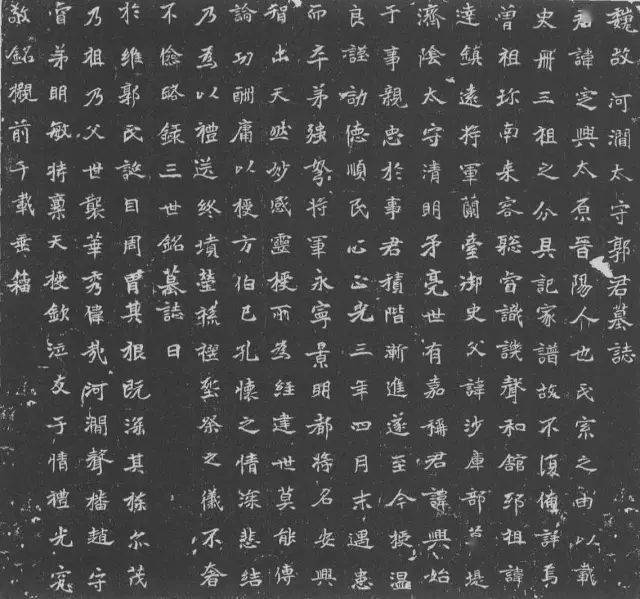 魏故河澗太守郭君墓誌
君諱定興太原晉陽人也氏宗之由以載
史冊三祖之分具記家譜故不復備詳焉
曾祖珍南来客聡睿識譏聲和館邳祖諱
達鎮遠將軍蘭臺御史父諱沙庫部堤
濟陰太守清明柔亮世有嘉稱君諱興始
于事親忠於事君積階漸進遂至今授溫
良謹勅德順民心正光三年四月末遇患
而卒弟强弩將軍永寧景明都將名安興
智出天然妙感靈授所為經建世莫能傳
論功酬庸以授方伯已孔懷之情深悲結
乃為以禮送終墳塋祭之儀不奢
不儉略錄三世銘墓誌曰
於維郭氏誕自周胄其根既深其條尔茂
乃祖乃父世襲華秀偉哉河澗聲播趙守
睿弟明敏特稟天授欽泣友于情禮光究
敬銘櫬前千載垂籍